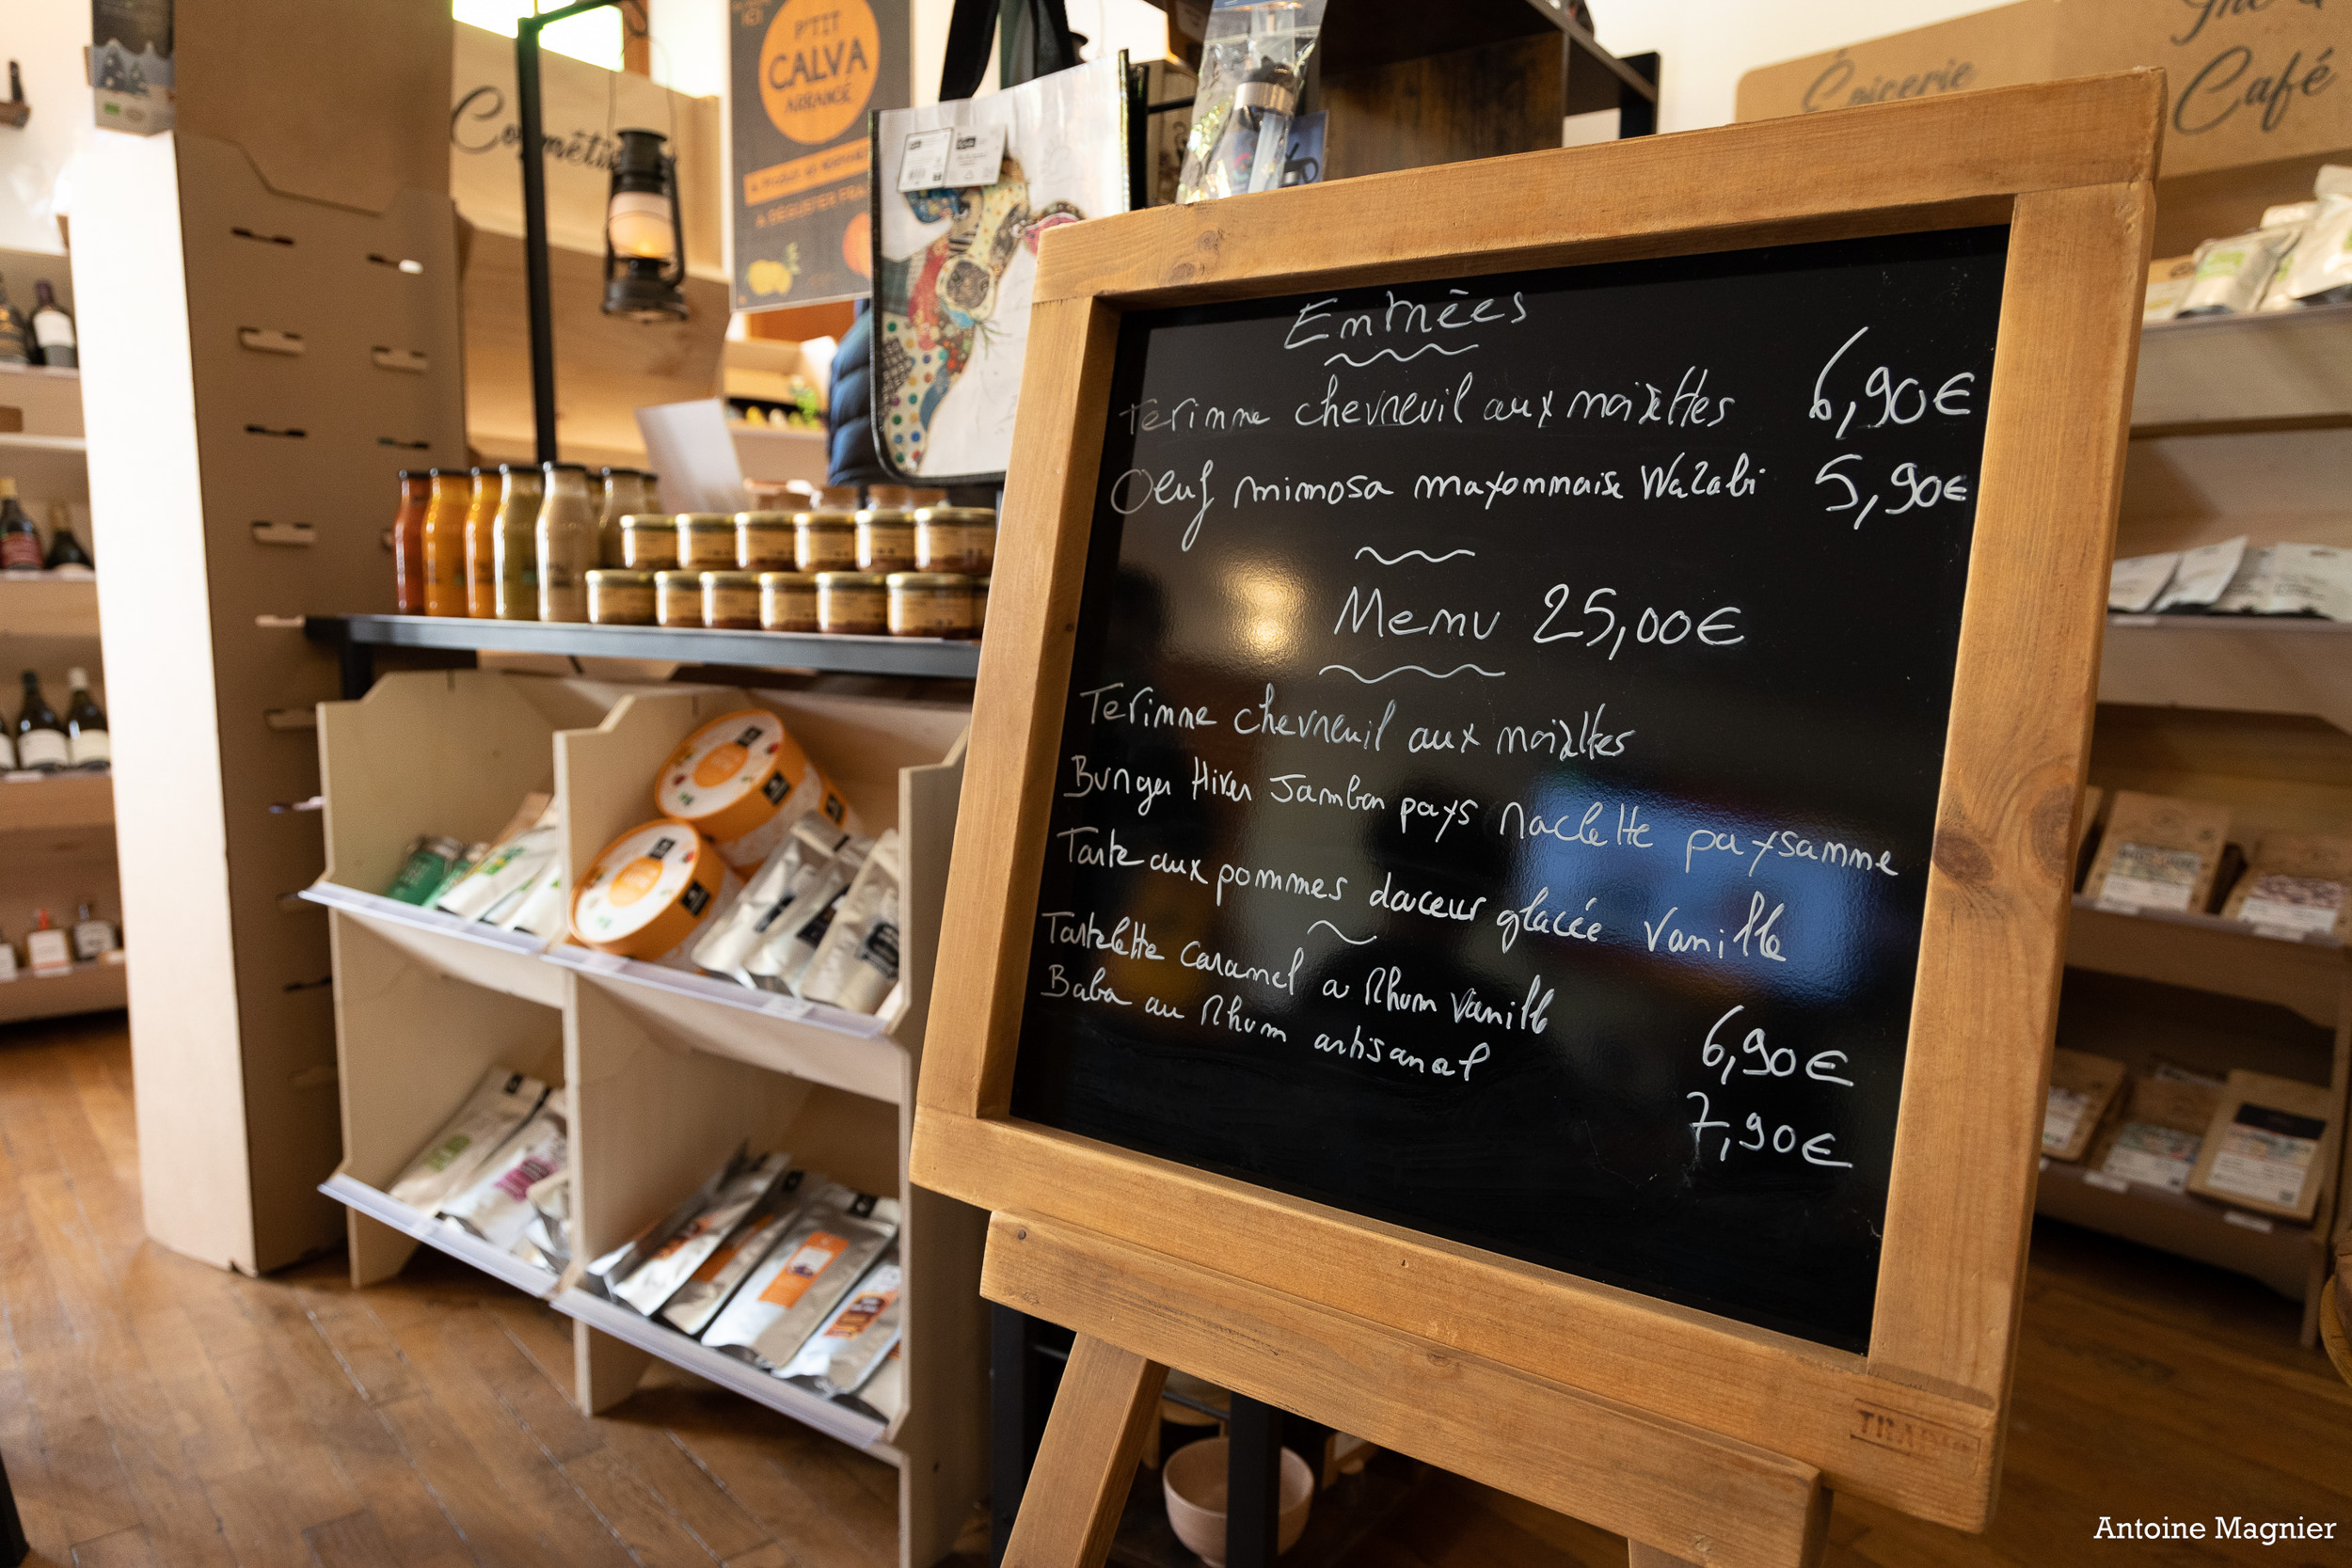 P'TIT
CALVA
ARRANGÉ
Épicerie
Café
Entrées
Terinne chevreuil aux noizettes 6,90€
Oeuf mimosa mayonnaise Wazabi 5,90€
Menu 25,00€
Terinne chevreuil aux noizettes
Burger Hiver Jambon pays raclette paysanne
Tarte aux pommes douceur glacée Vanille
Tartelette caramel a Rhum Vanille 6,90€
Baba au Rhum artisanal 7,90€
Antoine Magnier